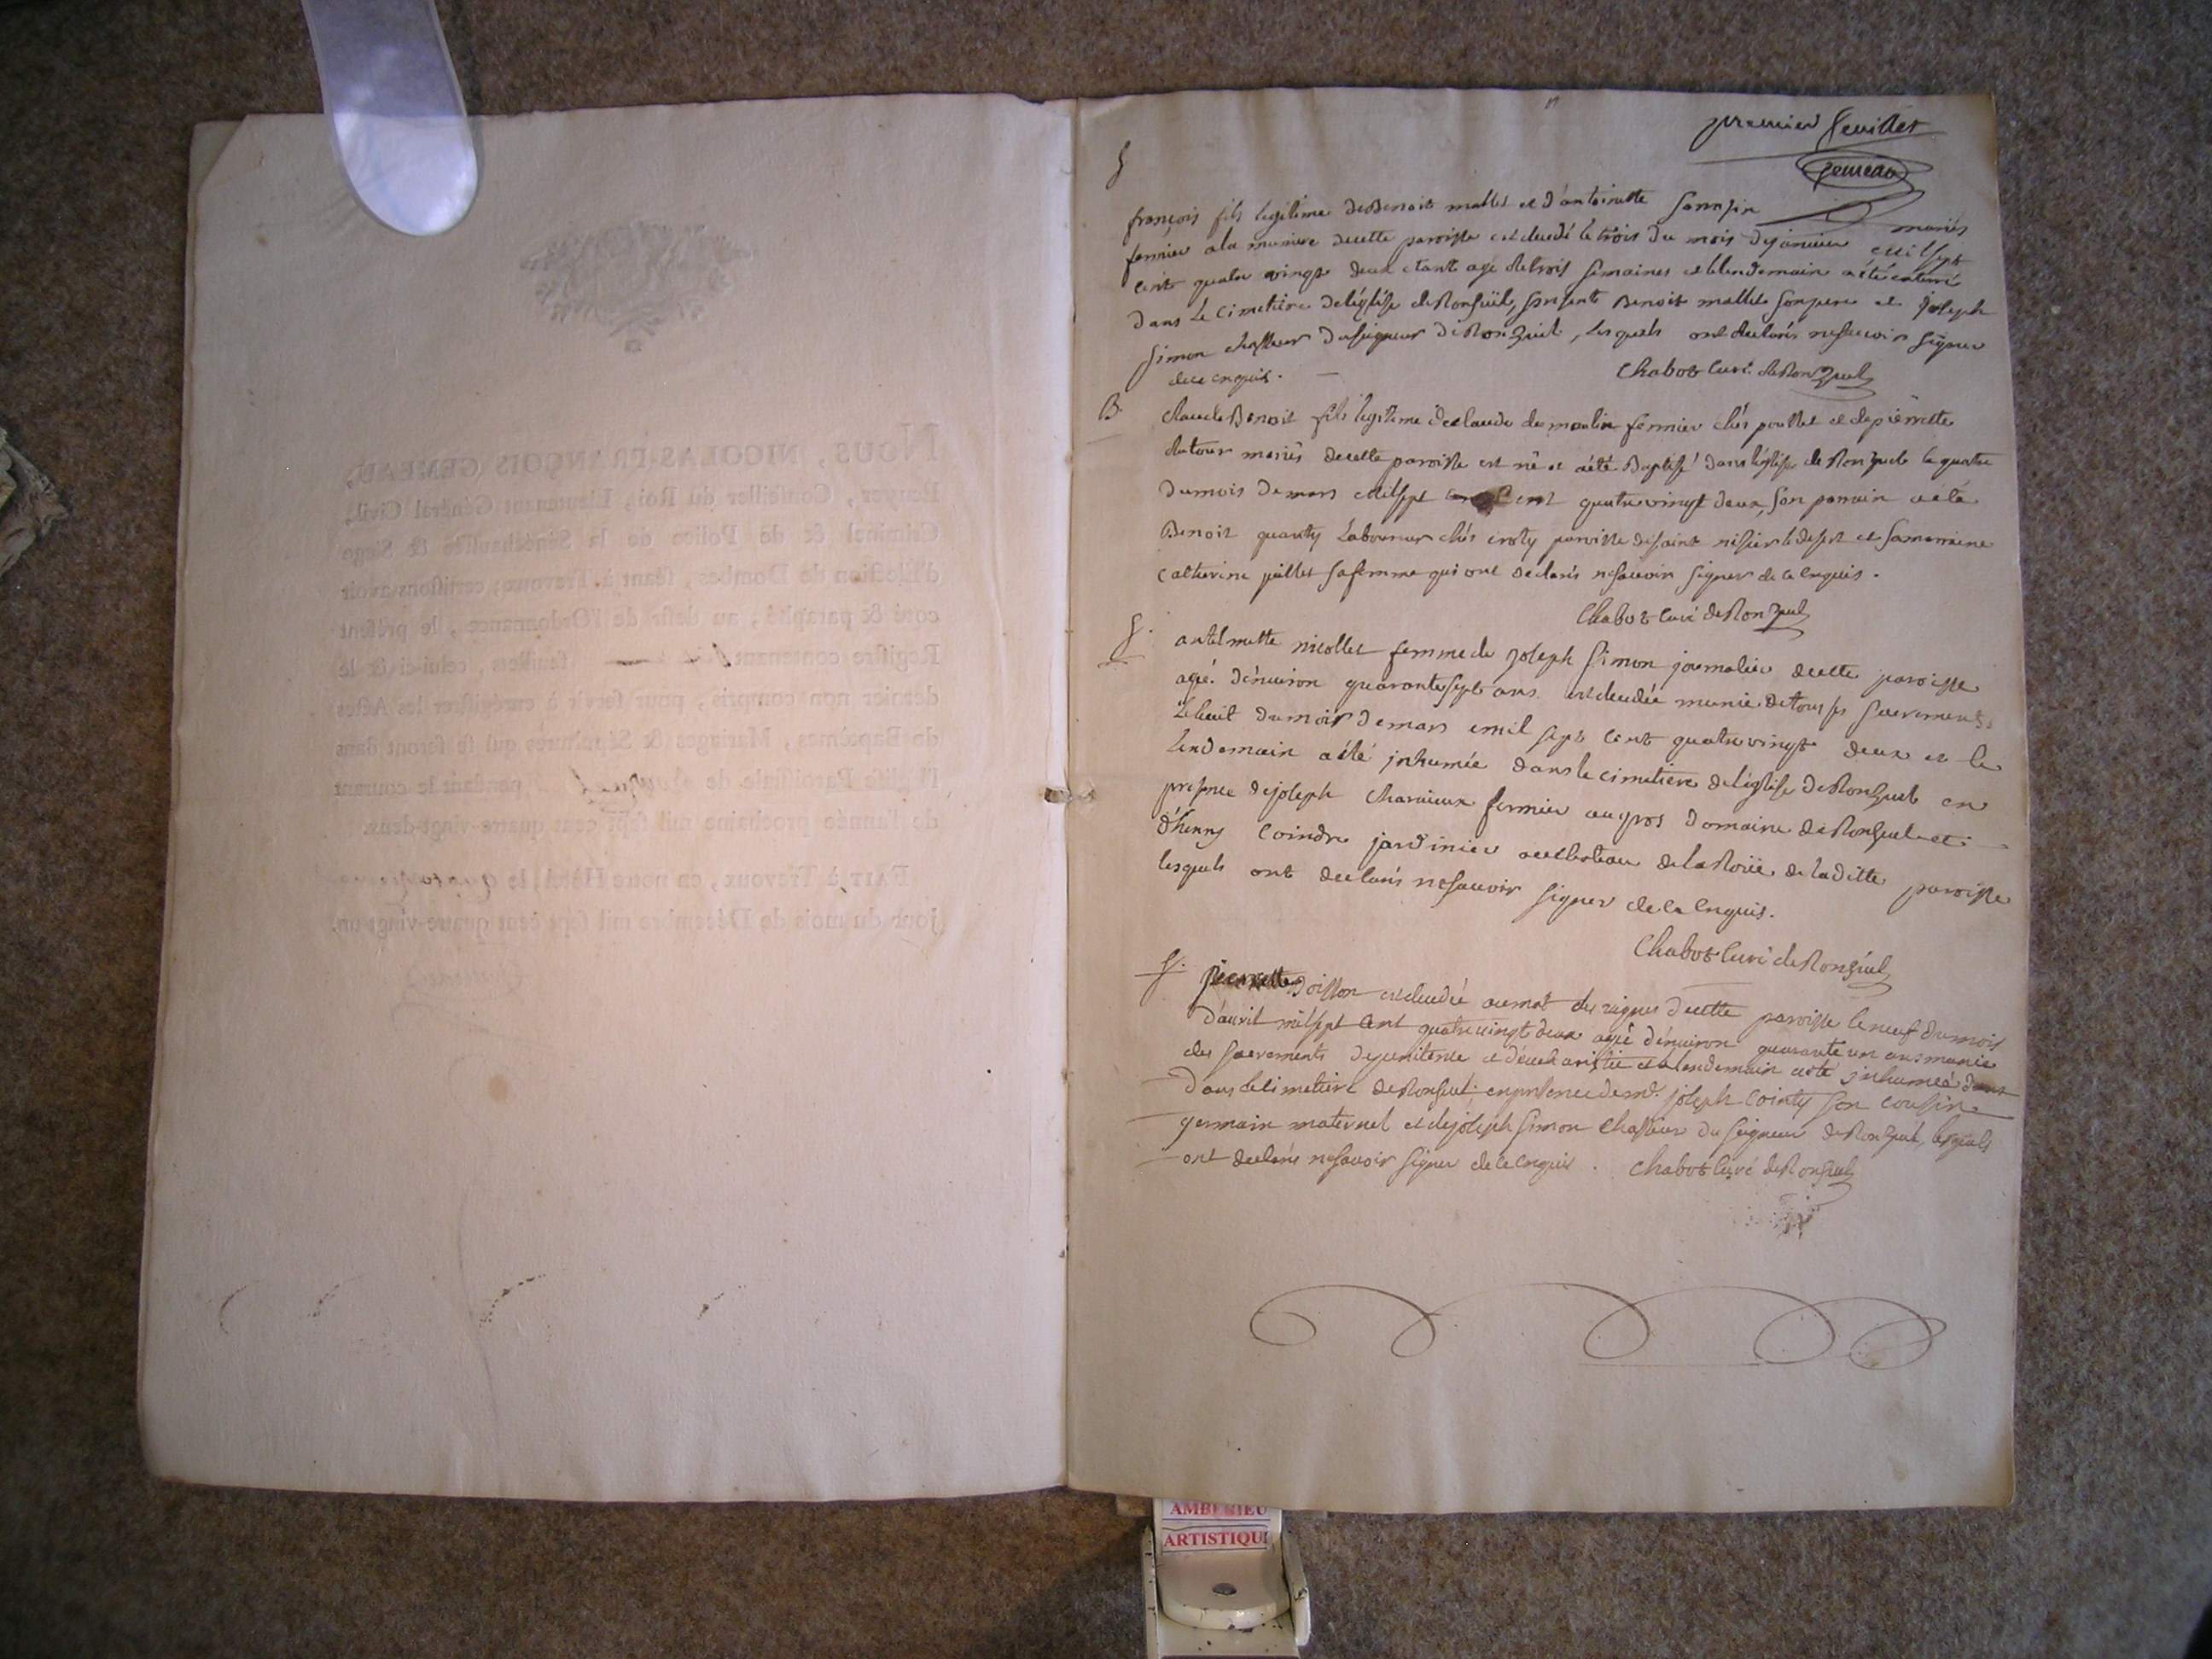 NOUS, NICOLAS-FRANÇOIS GEMEAU,
Ecuyer, Conseiller du Roi, Lieutenant Général Civil,
Criminel & de Police de la Sénéchaussée & Siege
d'Election de Dombes, séant à Trevoux, certifions avoir
coté & paraphé, au desir de l'Ordonnance, le présent
Registre contenant feuillets, celui-ci & le
dernier non compris, pour servir à enregistrer les Actes
de Baptêmes, Mariages & Sépultures qui se feront dans
l'Eglise Paroissiale de Ronzuel pendant le courant
de l'année prochaine mil sept cent quatre-vingt-deux.
FAIT à Trevoux, en notre Hôtel, le
jour du mois de Décembre mil sept cent quatre-vingt-un.
premier feuillet
gemeau
S
françois fils legitime de Benoit mallet et d'antoinette mariés
fermier a la decette paroisse est decedé le trois du mois de janvier mil sept
cent quatre vingt deux etant agé de trois semaines et le lendemain a été enterré
dans le cimetiere de l'église de Ronzuel, présents Benoit mallet son pere et joseph
simon chasseur du seigneur de Ronzuel, lesquels ont declarés ne savoir signer
de ce enquis.
Chabot curé de Ronzuel
B.
claude Benoit fils legitime de claude du moulin fermier chés poulet et de pierrette
dutour mariés decette paroisse est né et a été Baptisé dans l'église de Ronzuel le quatre
du mois de mars mil sept cent quatre vingt deux, son parrain a été
Benoit Laboureur chés paroisse de saint nisier le desert et sa marraine
catherine sa femme qui ont declarés ne savoir signer de ce enquis.
Chabot curé de Ronzuel
S.
antelmette nicollet femme de joseph simon journalier decette paroisse
agée d'environ quarante sept ans est decedée munie de tous ses sacrements
le huit du mois de mars mil sept cent quatre vingt deux et le
lendemain a été inhumée dans le cimetiere de l'église de Ronzuel en
presence de joseph charvieux fermier au gros domaine de Ronzuel et
d'henry coindre jardinier au chateau de la Roüe de la ditte paroisse
lesquels ont declarés ne savoir signer de ce enquis.
Chabot curé de Ronzuel
S.
pierrette est decedée au mat des vignes decette paroisse le neuf du mois
d'avril mil sept cent quatre vingt deux agée d'environ quarante un ans munie
des sacrements de penitence et d'eucharistie et le lendemain a été inhumée dans
dans le cimetiere de Ronzuel en presence de joseph cointy son cousin
germain maternel et de joseph simon chasseur du seigneur de Ronzuel, lesquels
ont declarés ne savoir signer de ce enquis. Chabot curé de Ronzuel
AMBERIEU
ARTISTIQU